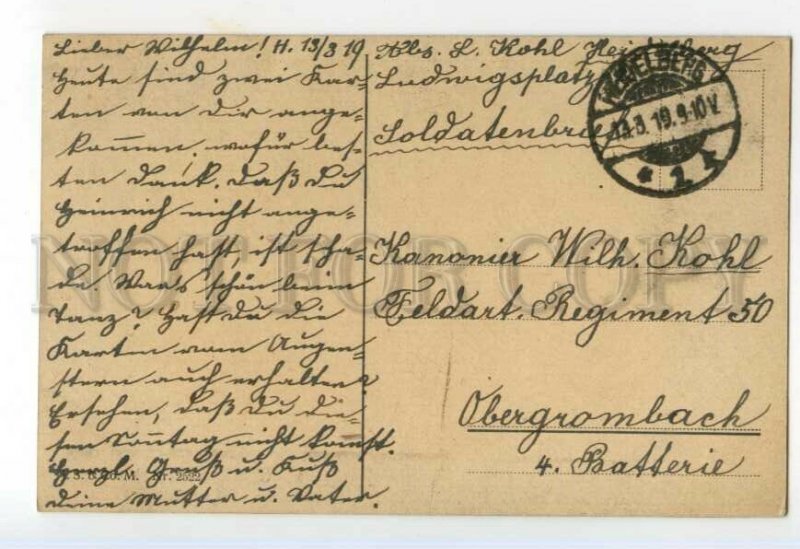 Lieber Wilhelm! H. 13/3 19
Heute sind zwei Kar-
ten von Dir ange-
kommen, wofür bes-
ten Dank. Daß Du
Heinrich nicht ange-
troffen hast, ist scha-
de. War's schön beim
Tanz? Hast Du die
Karten vom Augen-
stern auch erhalten?
Ersehen, daß Du die-
sen Sonntag nicht kommst.
Herzl. Gruß u. Kuß
Deine Mutter u. Vater.
Nr. 2522
Abs. L. Kohl Heidelberg
Ludwigsplatz
Soldatenbrief
HEIDELBERG
13.3.19.9-10V.
* 1
Kanonier Wilh. Kohl
Feldart. Regiment 50
Obergrombach
4. Batterie
NOT FOR COPY